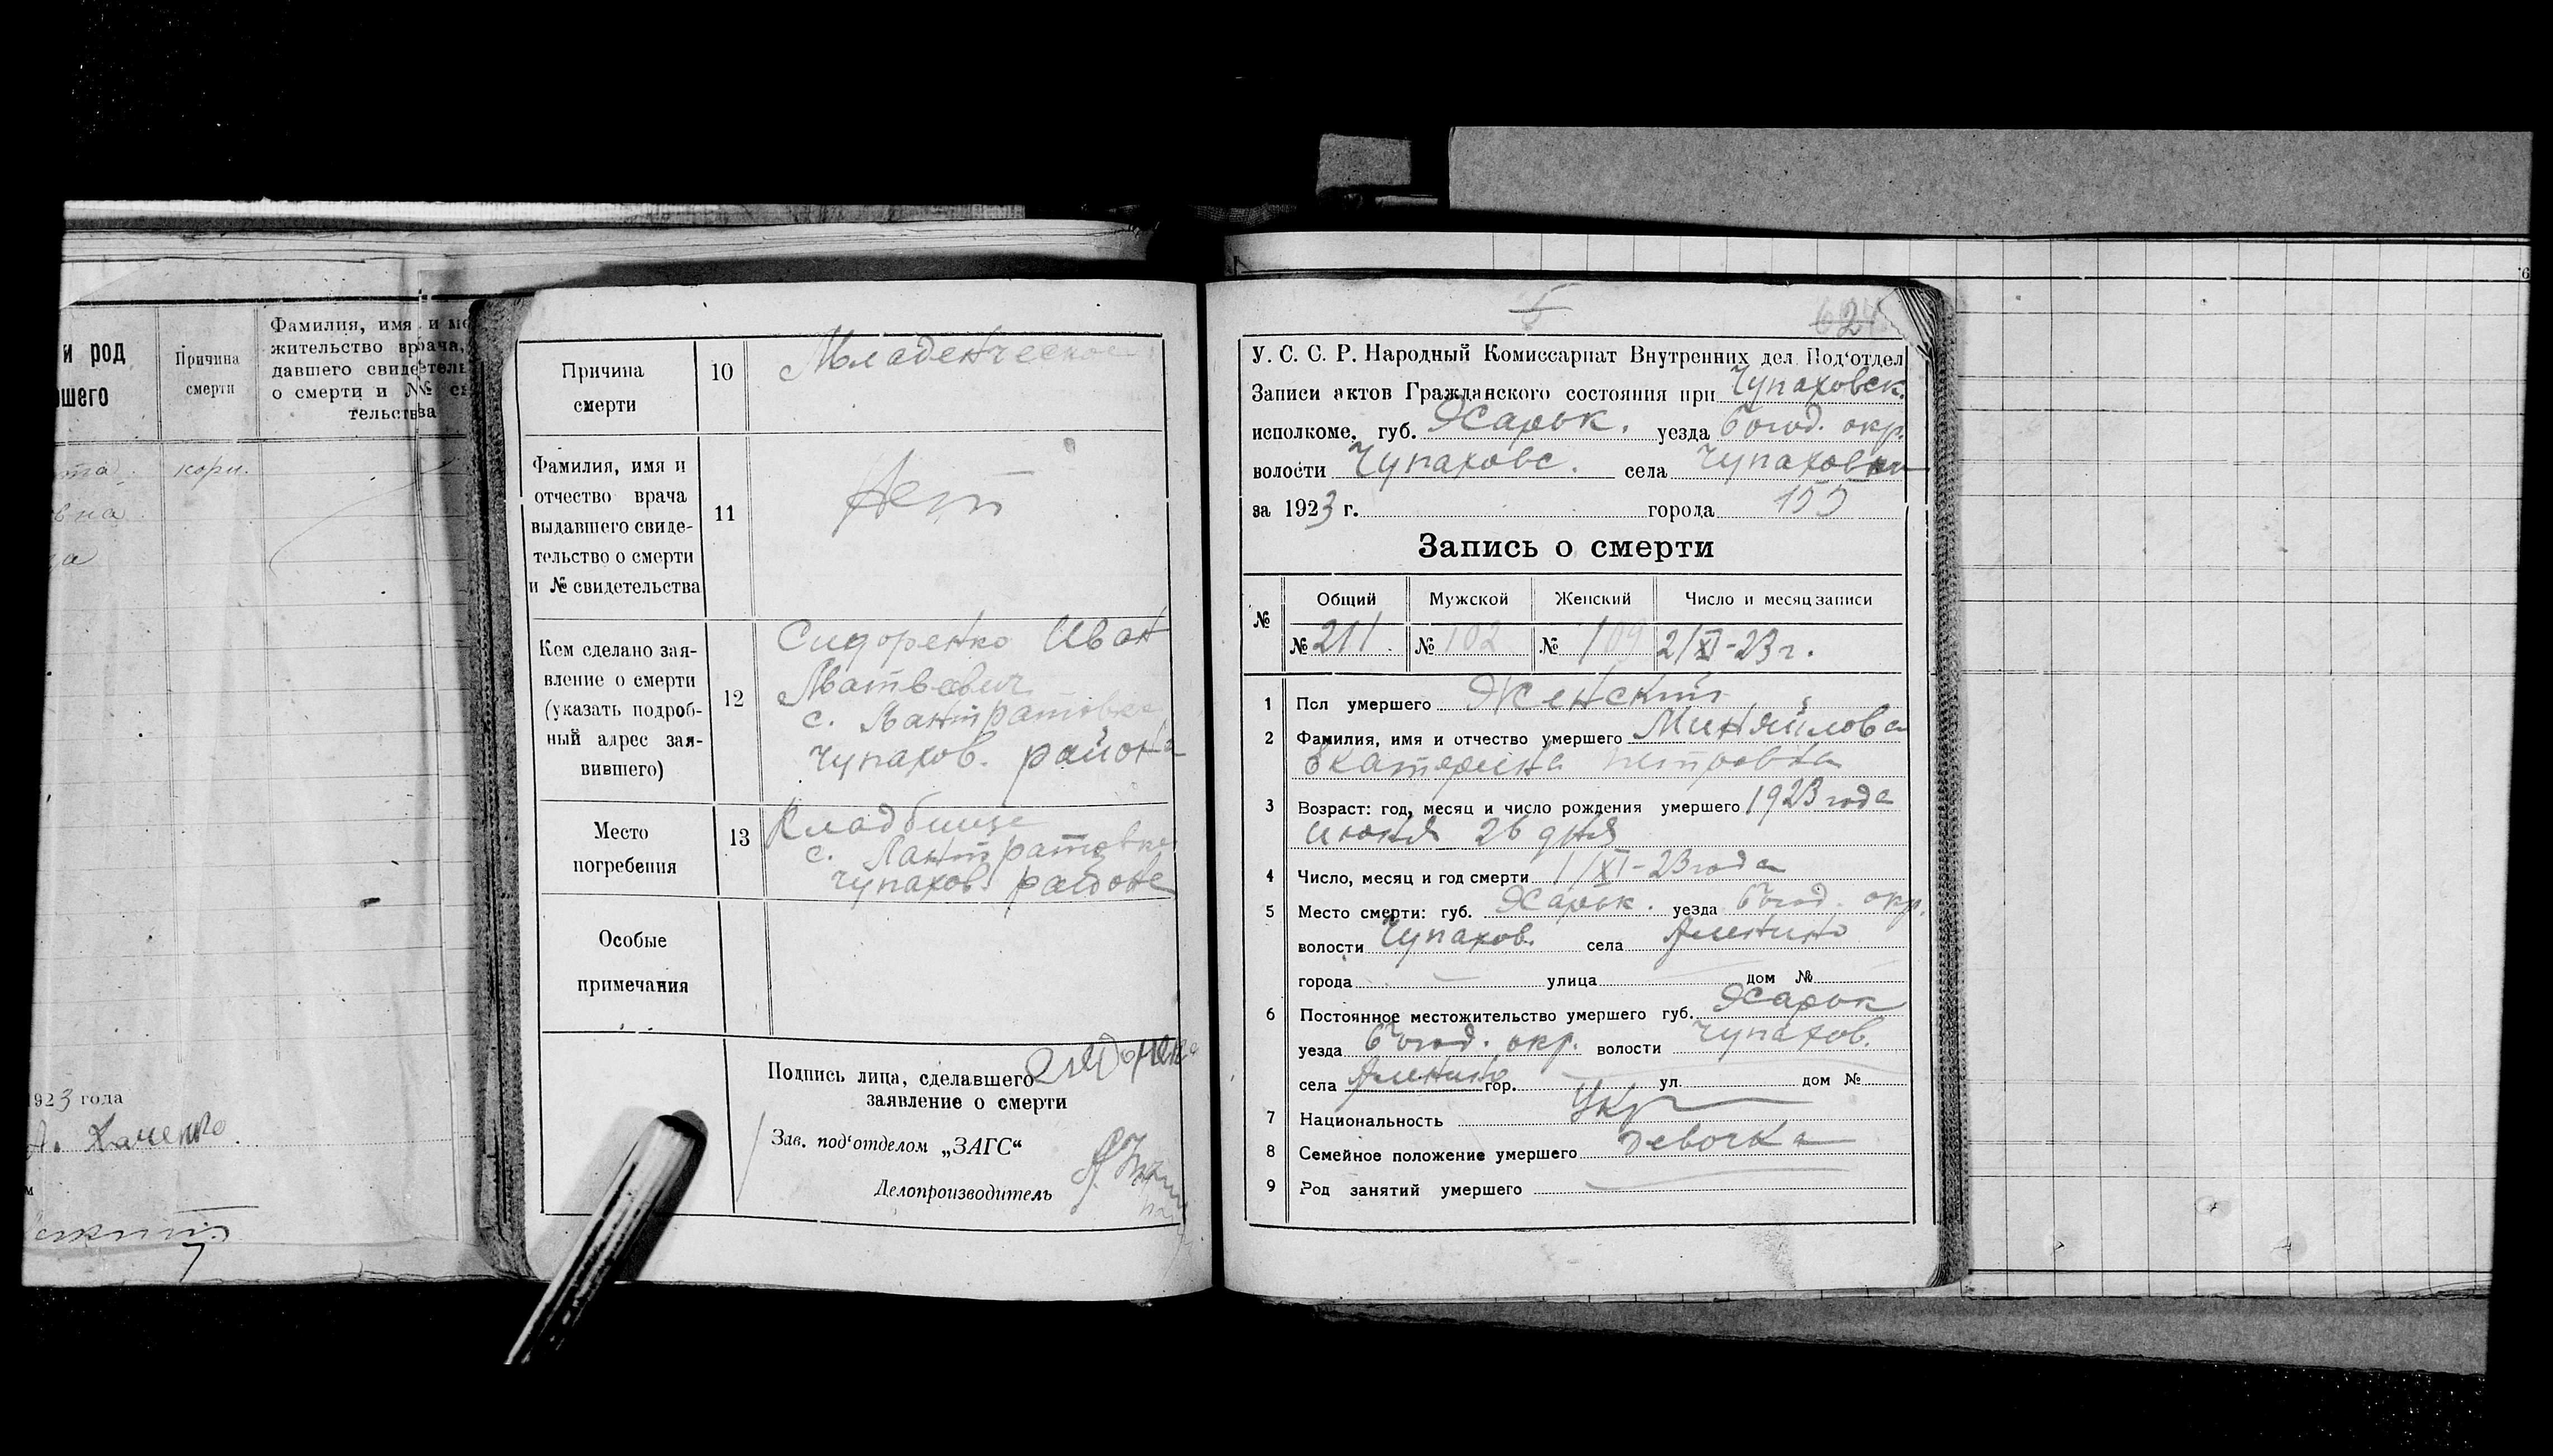 и род
шего
Причина
смерти
Фамилия, имя и ме
жительство врача,
давшего свидетель
о смерти и № св
тельства
кори.
вна
1923 года
Причина
смерти
10
Младенческое
Фамилия, имя и
отчество врача
выдавшего свиде-
тельство о смерти
и № свидетельства
11
Нет
Кем сделано зая-
вление о смерти
(указать подроб-
ный адрес зая-
вившего)
12
Сидоренко Иван
Матвеевич
с. Лантратовка
Чупахов. района
Место
погребения
13
Кладбище
с. Лантратовка
Чупахов. района
Особые
примечания
Подпись лица, сделавшего
заявление о смерти
Зав. под'отделом „ЗАГС“
Делопроизводитель
624
У. С. С. Р. Народный Комиссариат Внутренних дел Под'отдел
Записи актов Гражданского состояния при Чупаховск.
исполкоме. губ. Харьк. уезда Богод. окр.
волости Чупаховс. села Чупаховки
за 1923 г. города 155
Запись о смерти
№ Общий Мужской Женский Число и месяц записи
№ 211. № 102 № 109 2/XI-23 г.
1 Пол умершего Женский
2 Фамилия, имя и отчество умершего Миняйлова
Екатерина Петровна
3 Возраст: год, месяц и число рождения умершего 1923 года
июня 26 дня
4 Число, месяц и год смерти 1/XI-23 года
5 Место смерти: губ. Харьк. уезда Богод. окр.
волости Чупахов. села
города улица дом №
6 Постоянное местожительство умершего губ. Харьк
уезда Богод. окр. волости Чупахов.
села гор. ул. дом №
7 Национальность Укр
8 Семейное положение умершего Девочка
9 Род занятий умершего